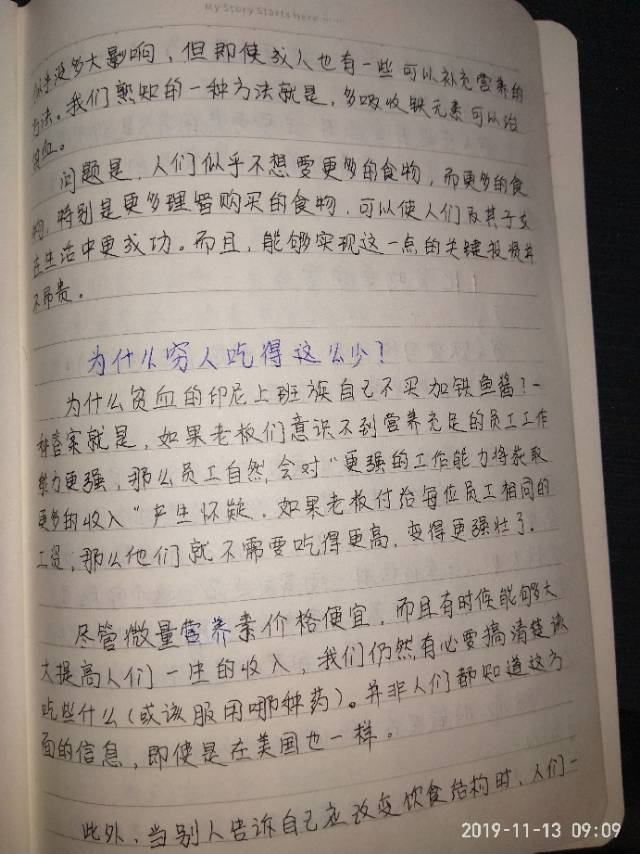 My Story Starts Here
似乎没多大影响，但即使成人也有一些可以补充营养的
方法。我们熟知的一种方法就是，多吸收铁元素可以治
贫血。
问题是，人们似乎不想要更多的食物，而更多的食
物，特别是更多理智购买的食物，可以使人们及其子女
在生活中更成功。而且，能够实现这一点的关键投损并
不吊贵。
为什么穷人吃得这么少？
为什么贫血的印尼上班族自己不买加铁鱼酱？一
种答案就是，如果老板们意识不到营养充足的员工工作
能力更强，那么员工自然会对“更强的工作能力将获取
更多的收入”产生怀疑．如果老板付给每位员工相同的
工资，那么他们就不需要吃得更高，变得更强壮了．
尽管微量营养素价格便宜，而且有时候能够大
大提高人们一生的收入，我们仍然有必要搞清楚该
吃些什么（或该服用哪种药）。并非人们都知道这方
面的信息，即使是在美国也一样．
此外，当别人告诉自己应改变饮食结构时，人们一
2019-11-13 09:09